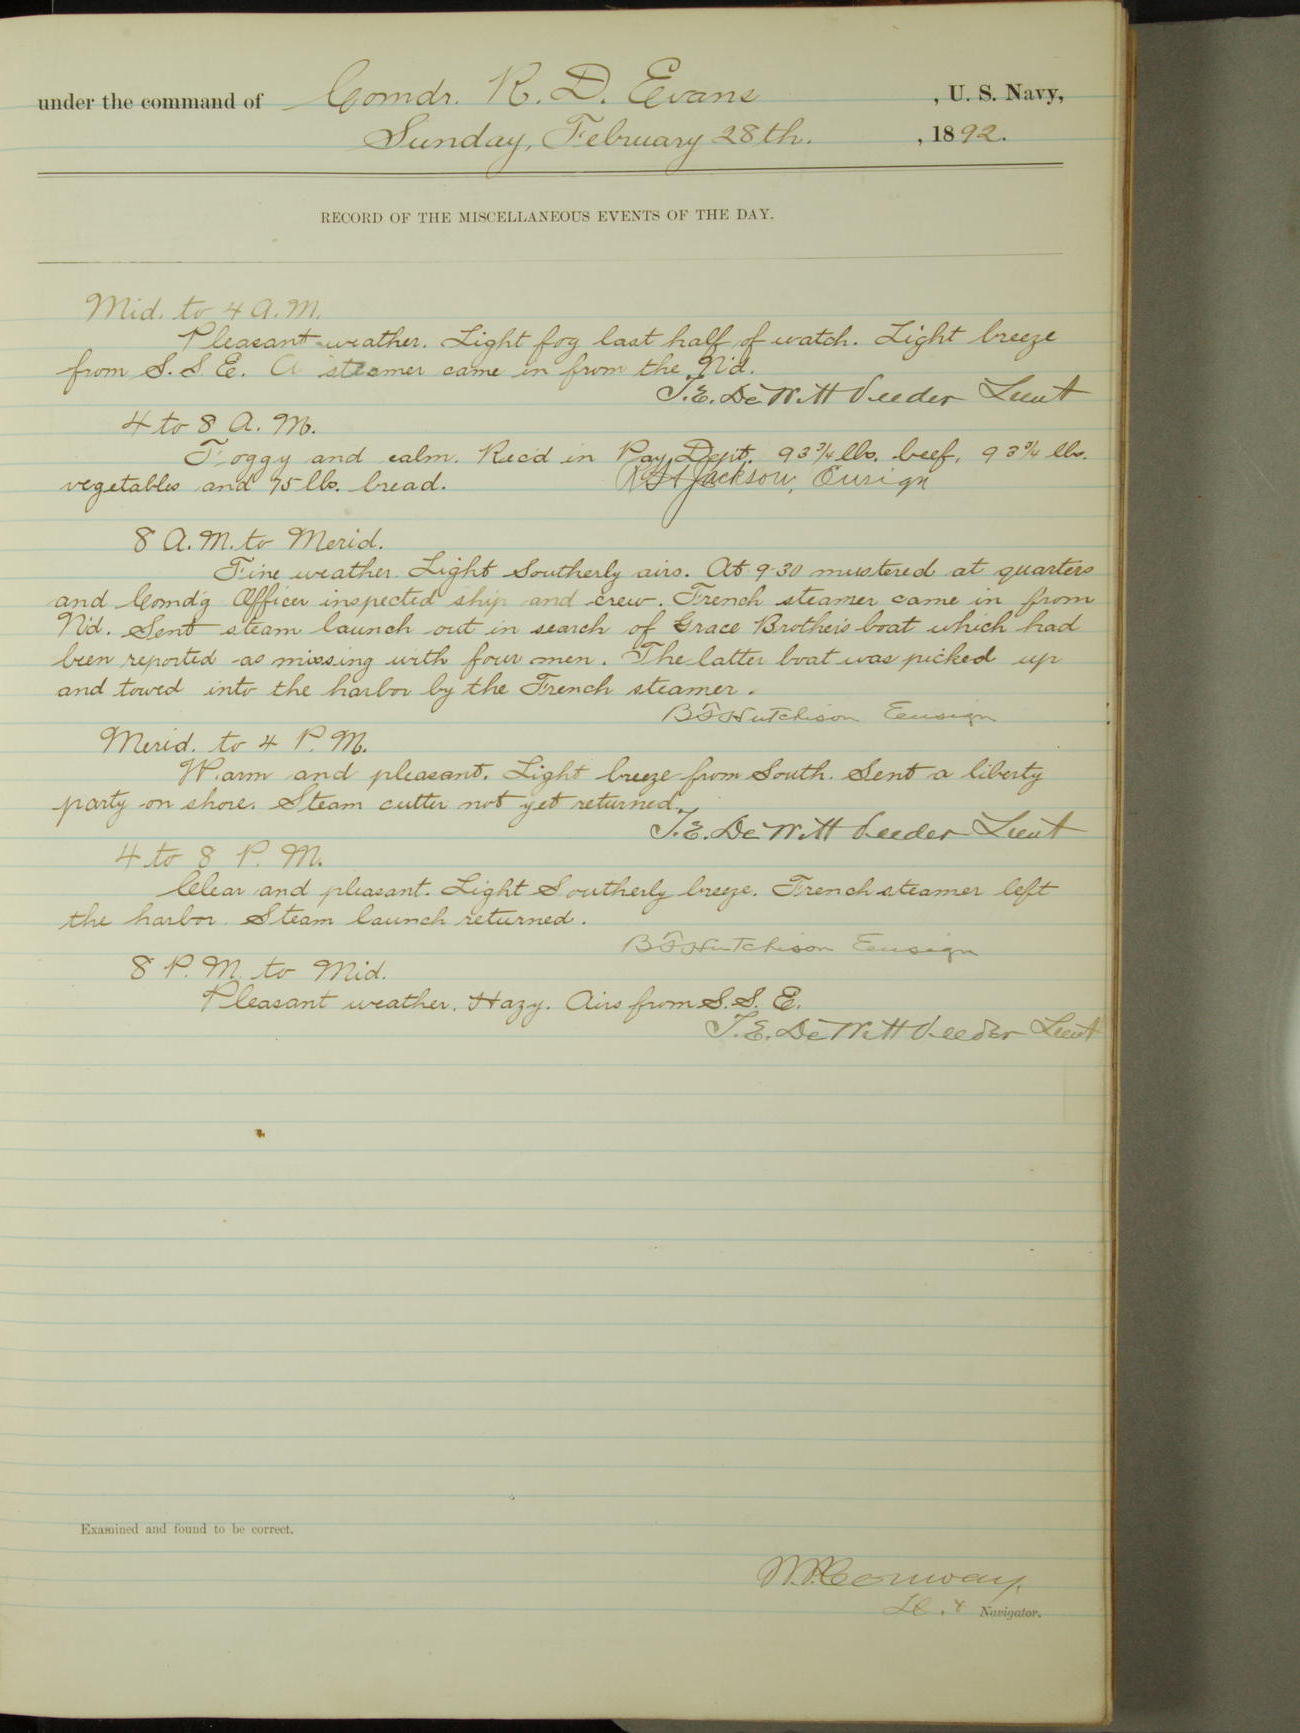 under the command of Comdr. R. D. Evans, U. S. Navy,
Sunday, February 28th., 1892.
RECORD OF THE MISCELLANEOUS EVENTS OF THE DAY.
Mid. to 4 A.M.
Pleasant weather. Light fog last half of watch. Light breeze
from S. S. E. A steamer came in from the N'd.
T. E. DeWitt Veeder Lieut
4 to 8 A. M.
Foggy and calm. Rec'd in Pay Dept. 93 3/4 lbs. beef, 93 3/4 lbs.
vegetables and 75 lbs. bread. R H Jackson, Ensign
8 A. M. to Merid.
Fine weather. Light Southerly airs. At 9-30 mustered at quarters
and Comd'g Officer inspected ship and crew. French steamer came in from
N'd. Sent steam launch out in search of Grace Brother's boat which had
been reported as missing with four men. The latter boat was picked up
and towed into the harbor by the French steamer.
B F Hutchison Ensign
Merid. to 4 P. M.
Warm and pleasant. Light breeze from South. Sent a liberty
party on shore. Steam cutter not yet returned.
T. E. DeWitt Veeder Lieut
4 to 8 P. M.
Clear and pleasant. Light Southerly breeze. French steamer left
the harbor. Steam launch returned.
B F Hutchison Ensign
8 P. M. to Mid.
Pleasant weather. Hazy. Airs from S. S. E.
T. E. DeWitt Veeder Lieut
Examined and found to be correct.
W. P. Conway,
Navigator.